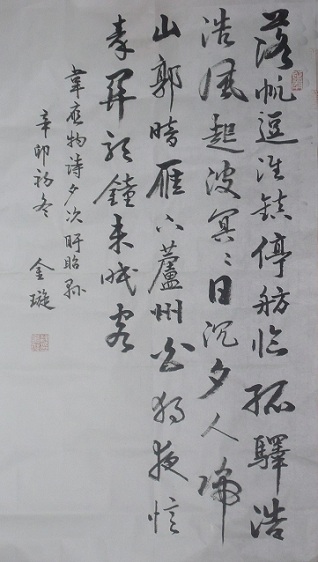 落帆逗淮鎮停舫临孤驛浩
浩風起波冥〻日沉夕人歸
山郭暗雁下蘆州白獨夜憶
秦関聽鐘未眠客
韋應物詩夕次盱眙縣
辛卯初冬 金璇